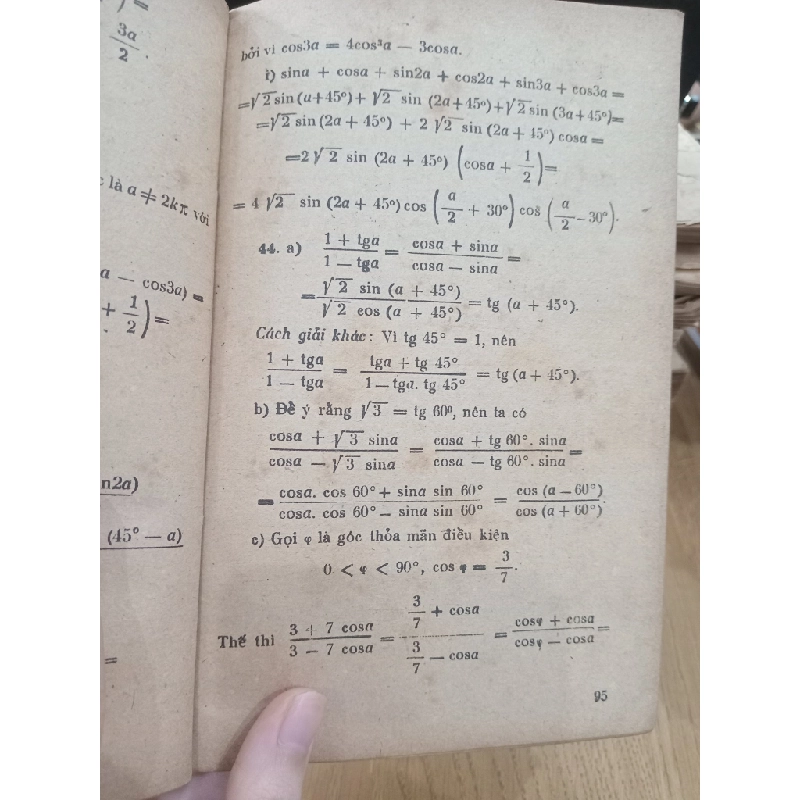 ) =
3a
2 .
c là a ≠ 2kπ với
a — cos3a) =
+ 1/2) =
n2a)
(45° — a)
=
bởi vì cos3a = 4cos³a — 3cosa.
i) sina + cosa + sin2a + cos2a + sin3a + cos3a =
=√2 sin (a+45°) + √2 sin (2a+45°)+√2 sin (3a+45°)=
=√2 sin (2a + 45°) + 2 √2 sin (2a + 45°) cosa =
=2√2 sin (2a + 45°) (cosa + 1/2)=
= 4 √2 sin (2a + 45°) cos (a/2 + 30°) cos (a/2 — 30°).
44. a) (1 + tga)/(1 — tga) = (cosa + sina)/(cosa — sina) =
= (√2 sin (a + 45°))/(√2 cos (a + 45°)) = tg (a + 45°).
Cách giải khác: Vì tg 45° = 1, nên
(1 + tga)/(1 — tga) = (tga + tg 45°)/(1 — tga. tg 45°) = tg (a + 45°).
b) Để ý rằng √3 = tg 60°, nên ta có
(cosa + √3 sina)/(cosa — √3 sina) = (cosa + tg 60°. sina)/(cosa — tg 60°. sina) =
= (cosa. cos 60° + sina sin 60°)/(cosa. cos 60° — sina sin 60°) = (cos (a — 60°))/(cos (a + 60°))
c) Gọi φ là góc thỏa mãn điều kiện
0 < φ < 90°, cos φ = 3/7.
Thế thì (3 + 7 cosa)/(3 — 7 cosa) = (3/7 + cosa)/(3/7 — cosa) = (cosφ + cosa)/(cosφ — cosa) =
95